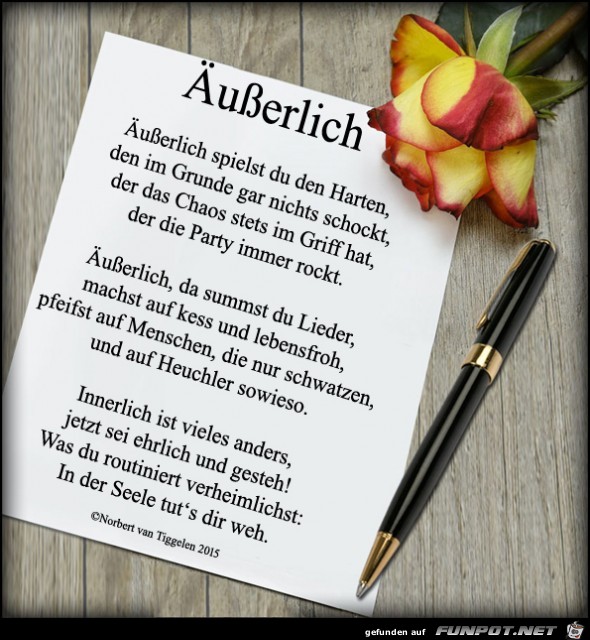 Äußerlich
Äußerlich spielst du den Harten,
den im Grunde gar nichts schockt,
der das Chaos stets im Griff hat,
der die Party immer rockt.
Äußerlich, da summst du Lieder,
machst auf kess und lebensfroh,
pfeifst auf Menschen, die nur schwatzen,
und auf Heuchler sowieso.
Innerlich ist vieles anders,
jetzt sei ehrlich und gesteh!
Was du routiniert verheimlichst:
In der Seele tut‘s dir weh.
©Norbert van Tiggelen 2015
gefunden auf FUNPOT.NET